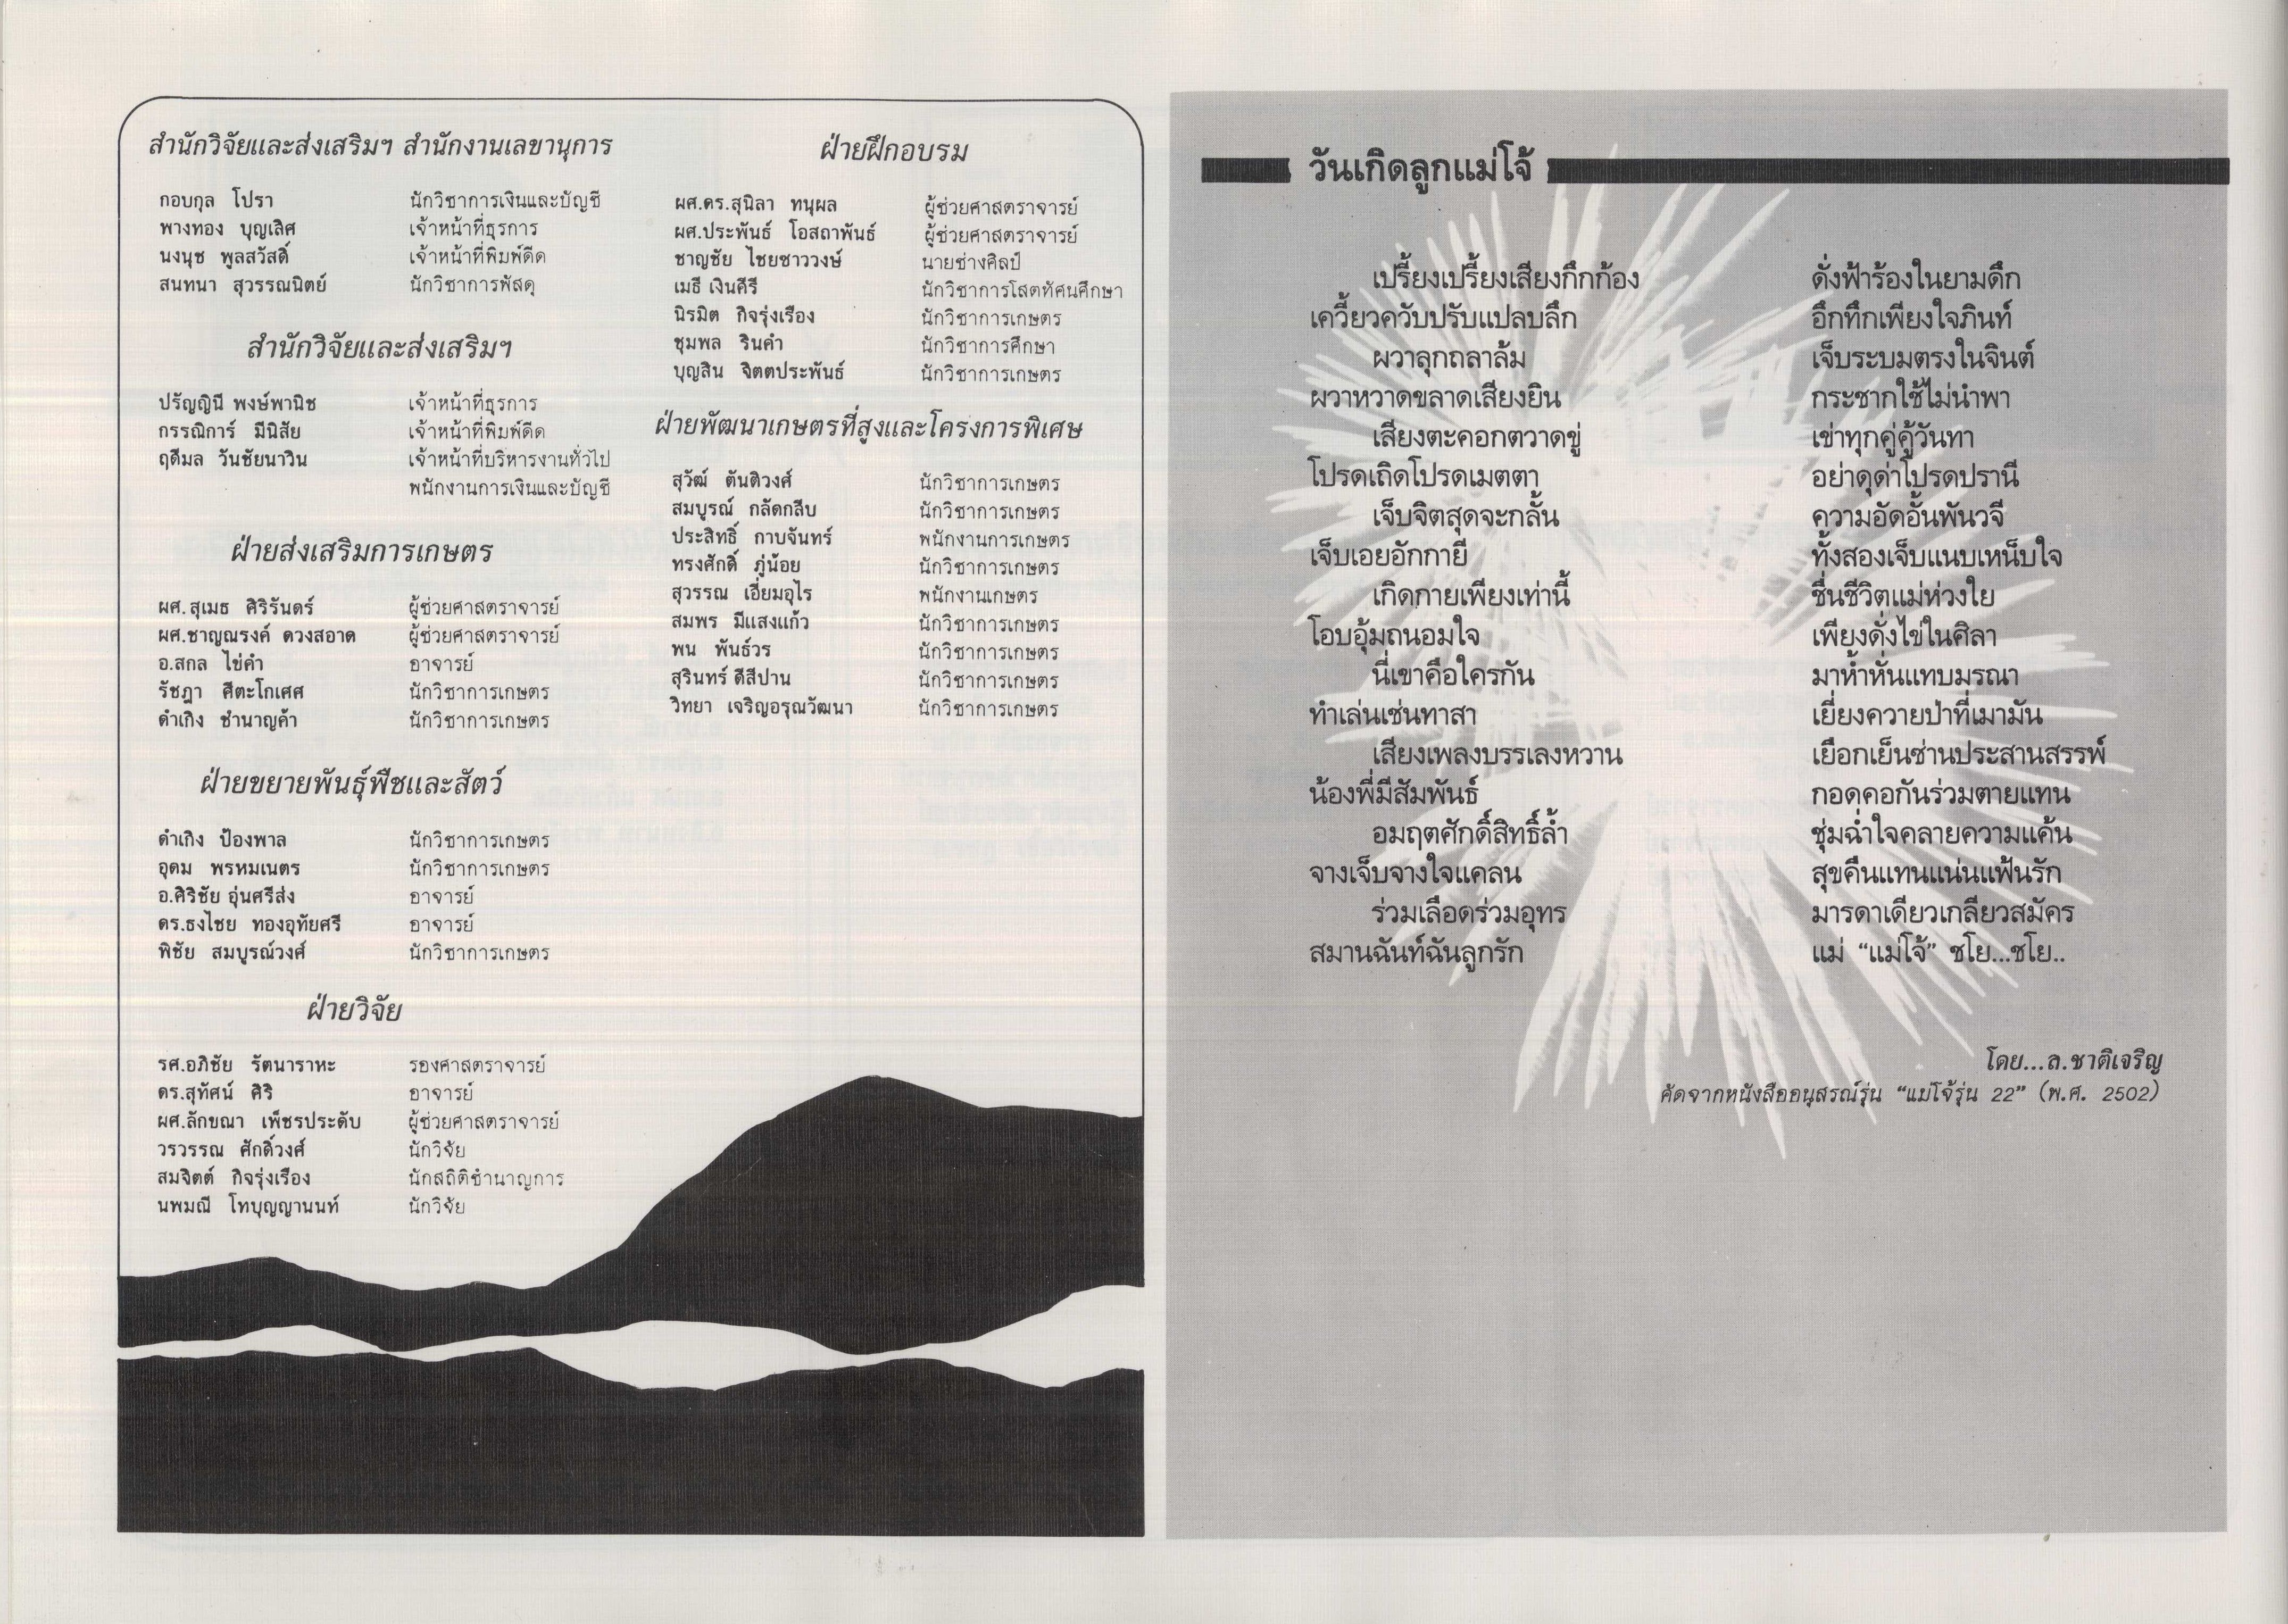 สำนักวิจัยและส่งเสริมฯ สำนักงานเลขานุการ
กอบกุล โปรา นักวิชาการเงินและบัญชี
พางทอง บุญเลิศ เจ้าหน้าที่ธุรการ
นงนุช พูลสวัสดิ์ เจ้าหน้าที่พิมพ์ดีด
สนทนา สุวรรณนิตย์ นักวิชาการพัสดุ
สำนักวิจัยและส่งเสริมฯ
ปรัญญินี พงษ์พานิช เจ้าหน้าที่ธุรการ
กรรณิการ์ มีนิสัย เจ้าหน้าที่พิมพ์ดีด
ฤดีมล วันชัยนาวิน เจ้าหน้าที่บริหารงานทั่วไป
พนักงานการเงินและบัญชี
ฝ่ายส่งเสริมการเกษตร
ผศ.สุเมธ ศิริรันดร์ ผู้ช่วยศาสตราจารย์
ผศ.ชาญณรงค์ ดวงสอาด ผู้ช่วยศาสตราจารย์
อ.สกล ไข่คำ อาจารย์
รัชฎา ศีตะโกเศศ นักวิชาการเกษตร
ดำเกิง ชำนาญค้า นักวิชาการเกษตร
ฝ่ายขยายพันธุ์พืชและสัตว์
ดำเกิง ป้องพาล นักวิชาการเกษตร
อุดม พรหมเนตร นักวิชาการเกษตร
อ.ศิริชัย อุ่นศรีส่ง อาจารย์
ดร.ธงไชย ทองอุทัยศรี อาจารย์
พิชัย สมบูรณ์วงศ์ นักวิชาการเกษตร
ฝ่ายวิจัย
รศ.อภิชัย รัตนาราหะ รองศาสตราจารย์
ดร.สุทัศน์ ศิริ อาจารย์
ผศ.ลักขณา เพ็ชรประดับ ผู้ช่วยศาสตราจารย์
วรวรรณ ศักดิ์วงศ์ นักวิจัย
สมจิตต์ กิจรุ่งเรือง นักสถิติชำนาญการ
นพมณี โทบุญญานนท์ นักวิจัย
ฝ่ายฝึกอบรม
ผศ.ดร.สุนิลา ทนุผล ผู้ช่วยศาสตราจารย์
ผศ.ประพันธ์ โอสถาพันธ์ ผู้ช่วยศาสตราจารย์
ชาญชัย ไชยชาววงษ์ นายช่างศิลป์
เมธี เงินคีรี นักวิชาการโสตทัศนศึกษา
นิรมิต กิจรุ่งเรือง นักวิชาการเกษตร
ชุมพล รินคำ นักวิชาการศึกษา
บุญสิน จิตตประพันธ์ นักวิชาการเกษตร
ฝ่ายพัฒนาเกษตรที่สูงและโครงการพิเศษ
สุวัฒ์ ตันติวงศ์ นักวิชาการเกษตร
สมบูรณ์ กลัดกลีบ นักวิชาการเกษตร
ประสิทธิ์ กาบจันทร์ พนักงานการเกษตร
ทรงศักดิ์ ภู่น้อย นักวิชาการเกษตร
สุวรรณ เอี่ยมอุไร พนักงานเกษตร
สมพร มีแสงแก้ว นักวิชาการเกษตร
พน พันธ์วร นักวิชาการเกษตร
สุรินทร์ ดีสีปาน นักวิชาการเกษตร
วิทยา เจริญอรุณวัฒนา นักวิชาการเกษตร
วันเกิดลูกแม่โจ้
เปรี้ยงเปรี้ยงเสียงกึกก้อง ดั่งฟ้าร้องในยามดึก
เควี้ยวควับปรับแปลบลึก อึกทึกเพียงใจภินท์
ผวาลุกถลาล้ม เจ็บระบมตรงในจินต์
ผวาหวาดขลาดเสียงยิน กระชากใช้ไม่นำพา
เสียงตะคอกตวาดขู่ เข่าทุกคู่คู้วันทา
โปรดเถิดโปรดเมตตา อย่าดุด่าโปรดปรานี
เจ็บจิตสุดจะกลั้น ความอัดอั้นพันวจี
เจ็บเอยอักกายี ทั้งสองเจ็บแนบเหน็บใจ
เกิดกายเพียงเท่านี้ ชื่นชีวิตแม่ห่วงใย
โอบอุ้มถนอมใจ เพียงดั่งไข่ในศิลา
นี่เขาคือใครกัน มาห้ำหั่นแทบมรณา
ทำเล่นเช่นทาสา เยี่ยงควายป่าที่เมามัน
เสียงเพลงบรรเลงหวาน เยือกเย็นซ่านประสานสรรพ์
น้องพี่มีสัมพันธ์ กอดคอกันร่วมตายแทน
อมฤตศักดิ์สิทธิ์ล้ำ ชุ่มฉ่ำใจคลายความแค้น
จางเจ็บจางใจแคลน สุขคืนแทนแน่นแฟ้นรัก
ร่วมเลือดร่วมอุทร มารดาเดียวเกลียวสมัคร
สมานฉันท์ฉันลูกรัก แม่ “แม่โจ้” ชโย...ชโย..
โดย...ล.ชาติเจริญ
คัดจากหนังสืออนุสรณ์รุ่น “แม่โจ้รุ่น 22” (พ.ศ. 2502)